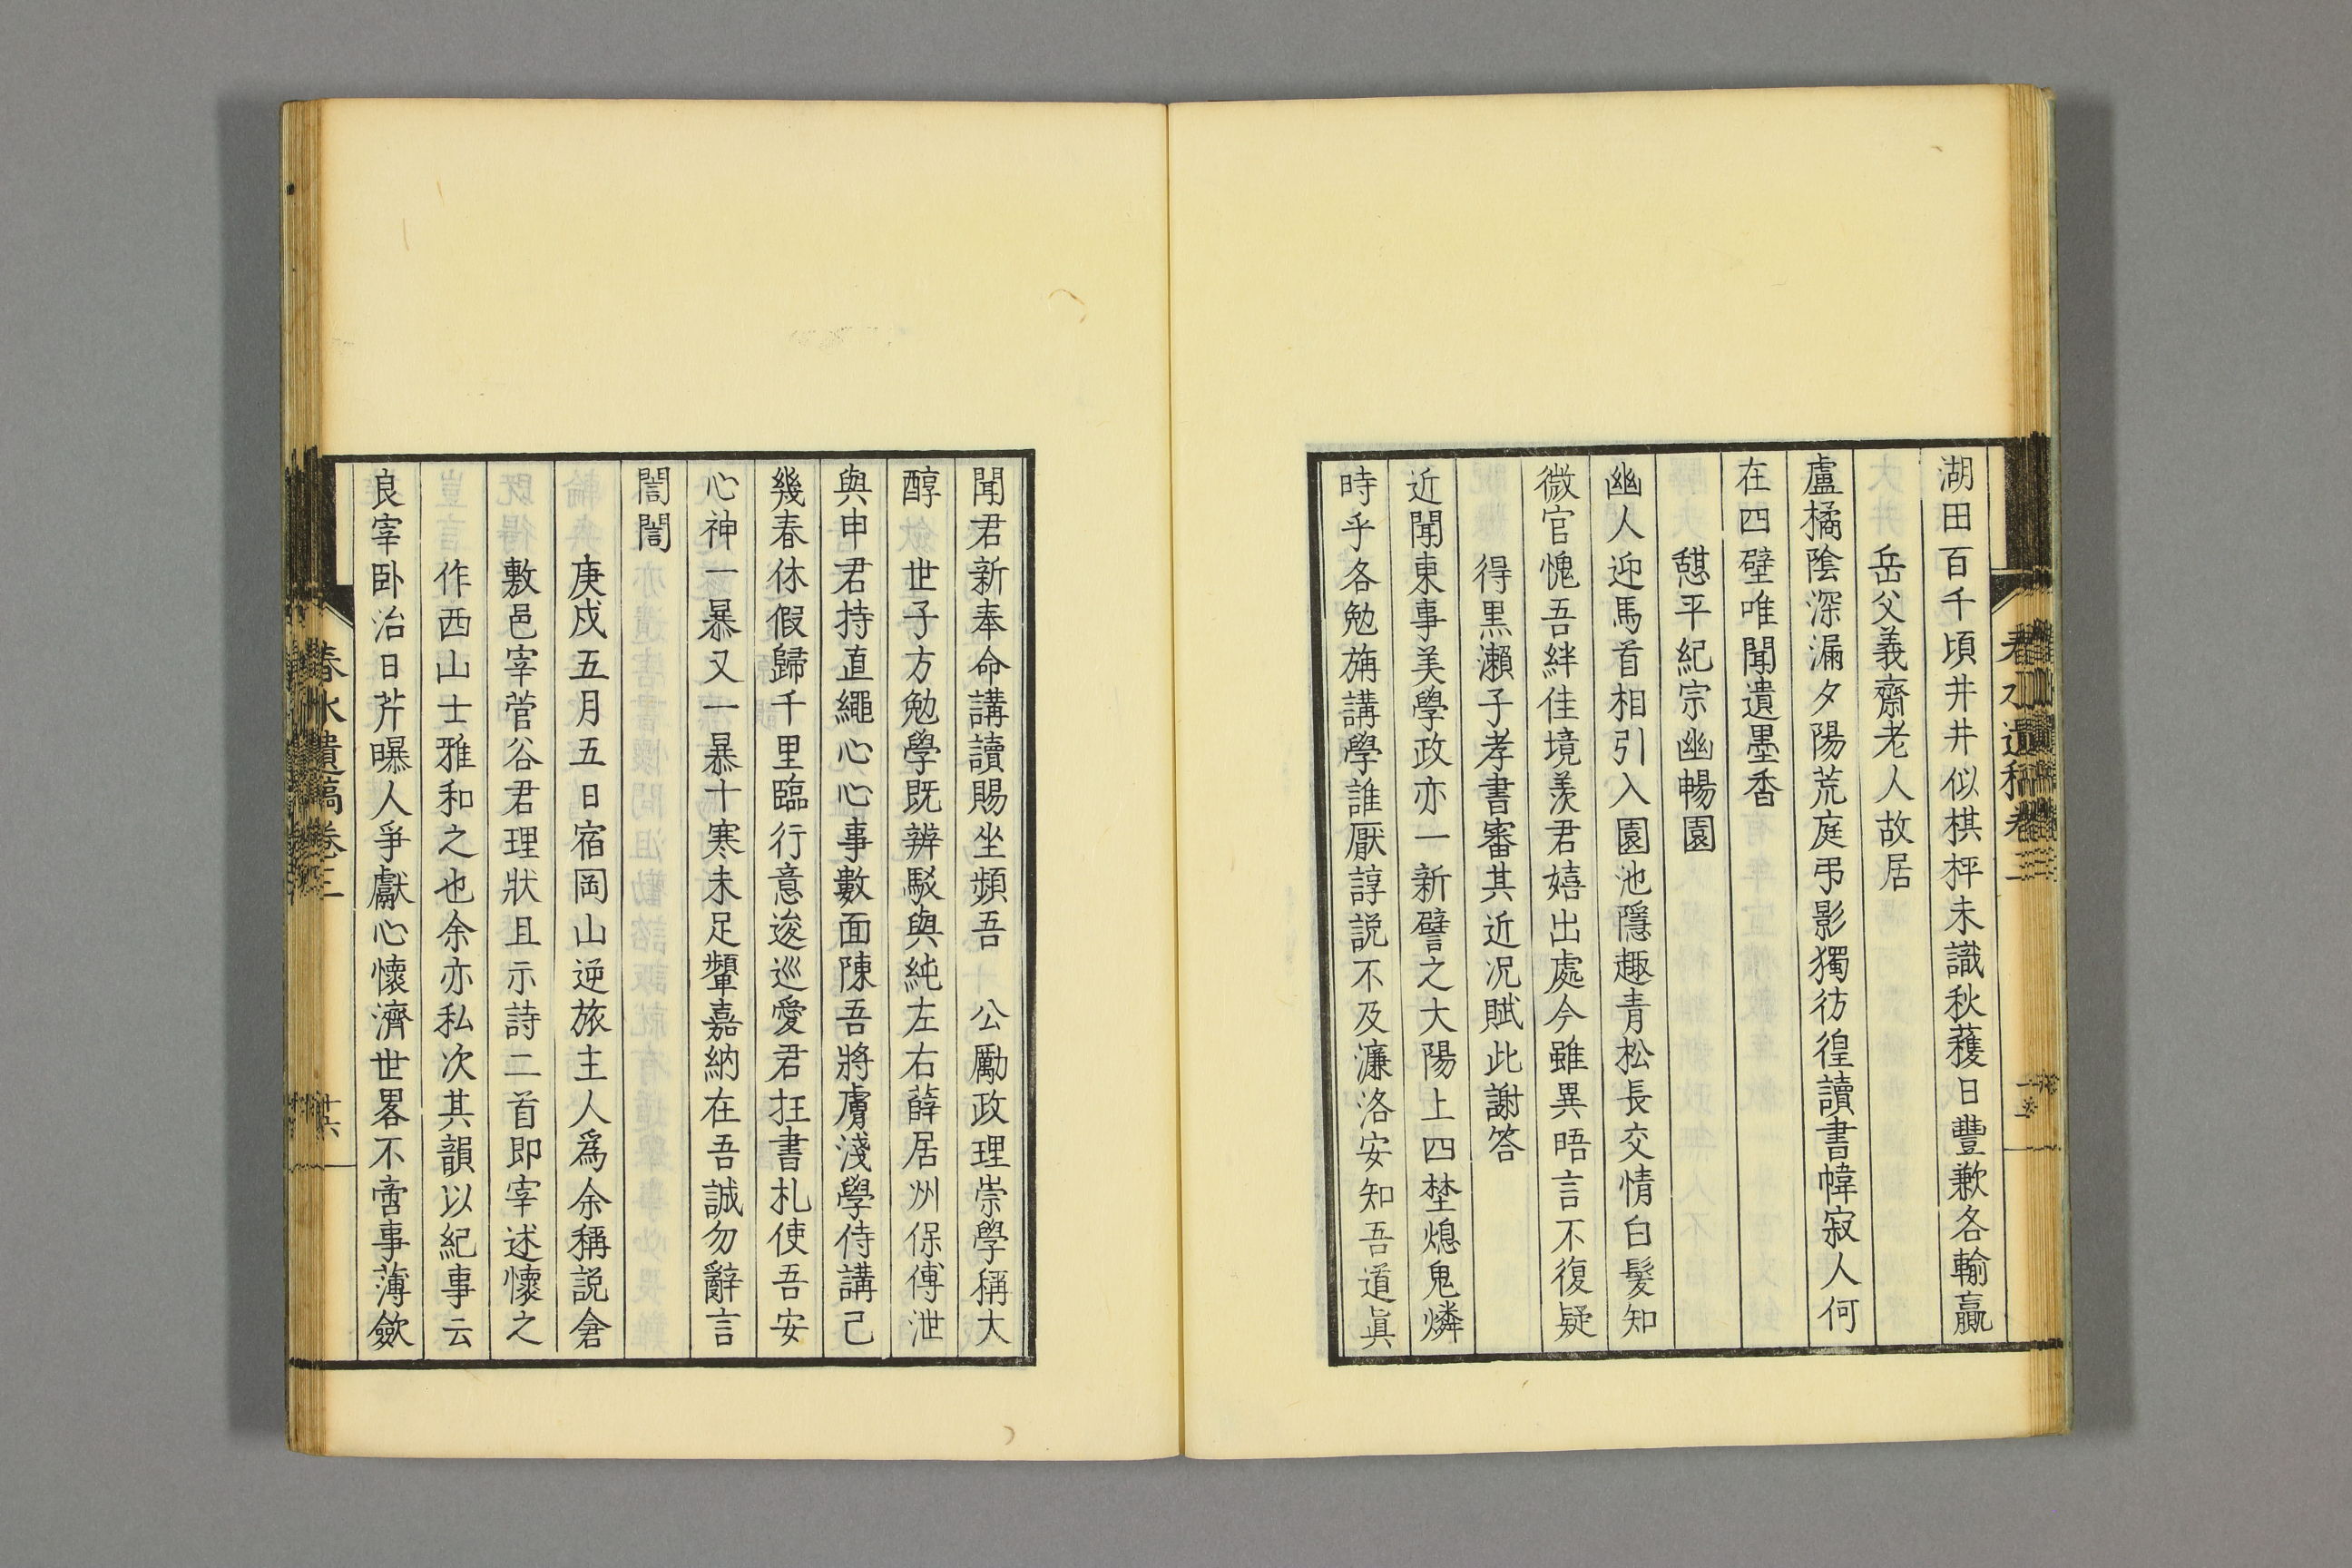 湖田百千頃井井似棋枰未識秋穫日豐歉各輸贏
岳父義齋老人故居
盧橘陰深漏夕陽荒庭弔影獨彷徨讀書幃寂人何
在四壁唯聞遺墨香
憇平紀宗幽暢園
幽人迎馬首相引入園池隱趣青松長交情白髮知
微官愧吾絆佳境羨君嬉出處今雖異晤言不復疑
得黒瀨子孝書審其近况賦此謝答
近聞東事美學政亦一新譬之大陽上四埜熄鬼燐
時乎各勉旃講學誰厭諄説不及濂洛安知吾道眞
聞君新奉命講讀賜坐頻吾 公勵政理崇學稱大
醇 世子方勉學既辨駁與純左右薛居州保傅泄
與申君持直繩心心事數面陳吾將膚淺學侍講己
幾春休假歸千里臨行意逡巡愛君抂書札使吾安
心神一暴又一暴十寒未足顰嘉納在吾誠勿辭言
誾誾
庚戍五月五日宿岡山逆旅主人爲余稱説倉
敷邑宰菅谷君理狀且示詩二首即宰述懷之
作西山士雅和之也余亦私次其韻以紀事云
良宰卧治日芹曝人爭獻心懷濟世畧不啻事薄斂
春水遺稿卷三